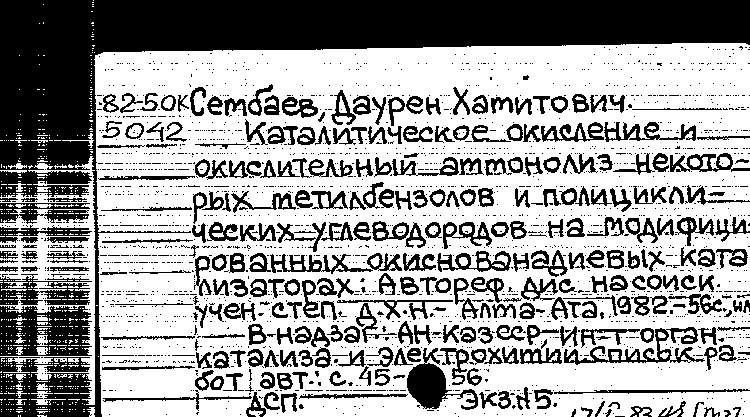 82-50К Сембаев, Даурен Хамитович.
5042 Каталитическое окисление и
окислительный аммонолиз некото-
рых метилбензолов и полицикли-
ческих углеводородов на модифици-
рованных окиснованадиевых ката
лизаторах: Автореф. дис. на соиск.
учен. степ. д.х.н.- Алма-Ата, 1982.-56с., ил
В надзаг.: АН КазССР, Ин-т орган.
катализа и электрохимии. Список ра-
бот авт.: с. 45- 56.
ДСП. Экз.N5.